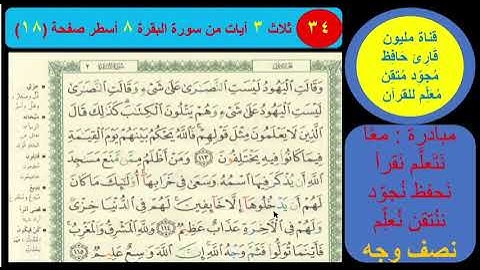 ٣٤
ثلاث ٣ أيات من سورة البقرة ٨ أسطر صفحة (١٨)
قناة مليون
قارئ حافظ
مُجوّد مُتقن
مُعلّم للقرآن
مبادرة : معًا
نَتَعلّم نَقرأ
نَحفظ نُجوّد
نُتقن نُعلّم
نصف وجه
وَقَالَتِ الْيَهُودُ لَيْسَتِ النَّصَارَىٰ عَلَىٰ شَيْءٍ وَقَالَتِ النَّصَارَىٰ
لَيْسَتِ الْيَهُودُ عَلَىٰ شَيْءٍ وَهُمْ يَتْلُونَ الْكِتَابَ كَذَٰلِكَ قَالَ
الَّذِينَ لَا يَعْلَمُونَ مِثْلَ قَوْلِهِمْ فَاللَّهُ يَحْكُمُ بَيْنَهُمْ يَوْمَ الْقِيَامَةِ
فِيمَا كَانُوا فِيهِ يَخْتَلِفُونَ ١١٣ وَمَنْ أَظْلَمُ مِمَّنْ مَنَعَ مَسَاجِدَ
اللَّهِ أَنْ يُذْكَرَ فِيهَا اسْمُهُ وَسَعَىٰ فِي خَرَابِهَا أُولَٰئِكَ مَا كَانَ
لَهُمْ أَنْ يَدْخُلُوهَا إِلَّا خَائِفِينَ لَهُمْ فِي الدُّنْيَا خِزْيٌ
وَلَهُمْ فِي الْآخِرَةِ عَذَابٌ عَظِيمٌ ١١٤ وَلِلَّهِ الْمَشْرِقُ وَالْمَغْرِبُ
فَأَيْنَمَا تُوَلُّوا فَثَمَّ وَجْهُ اللَّهِ إِنَّ اللَّهَ وَاسِعٌ عَلِيمٌ ١١٥